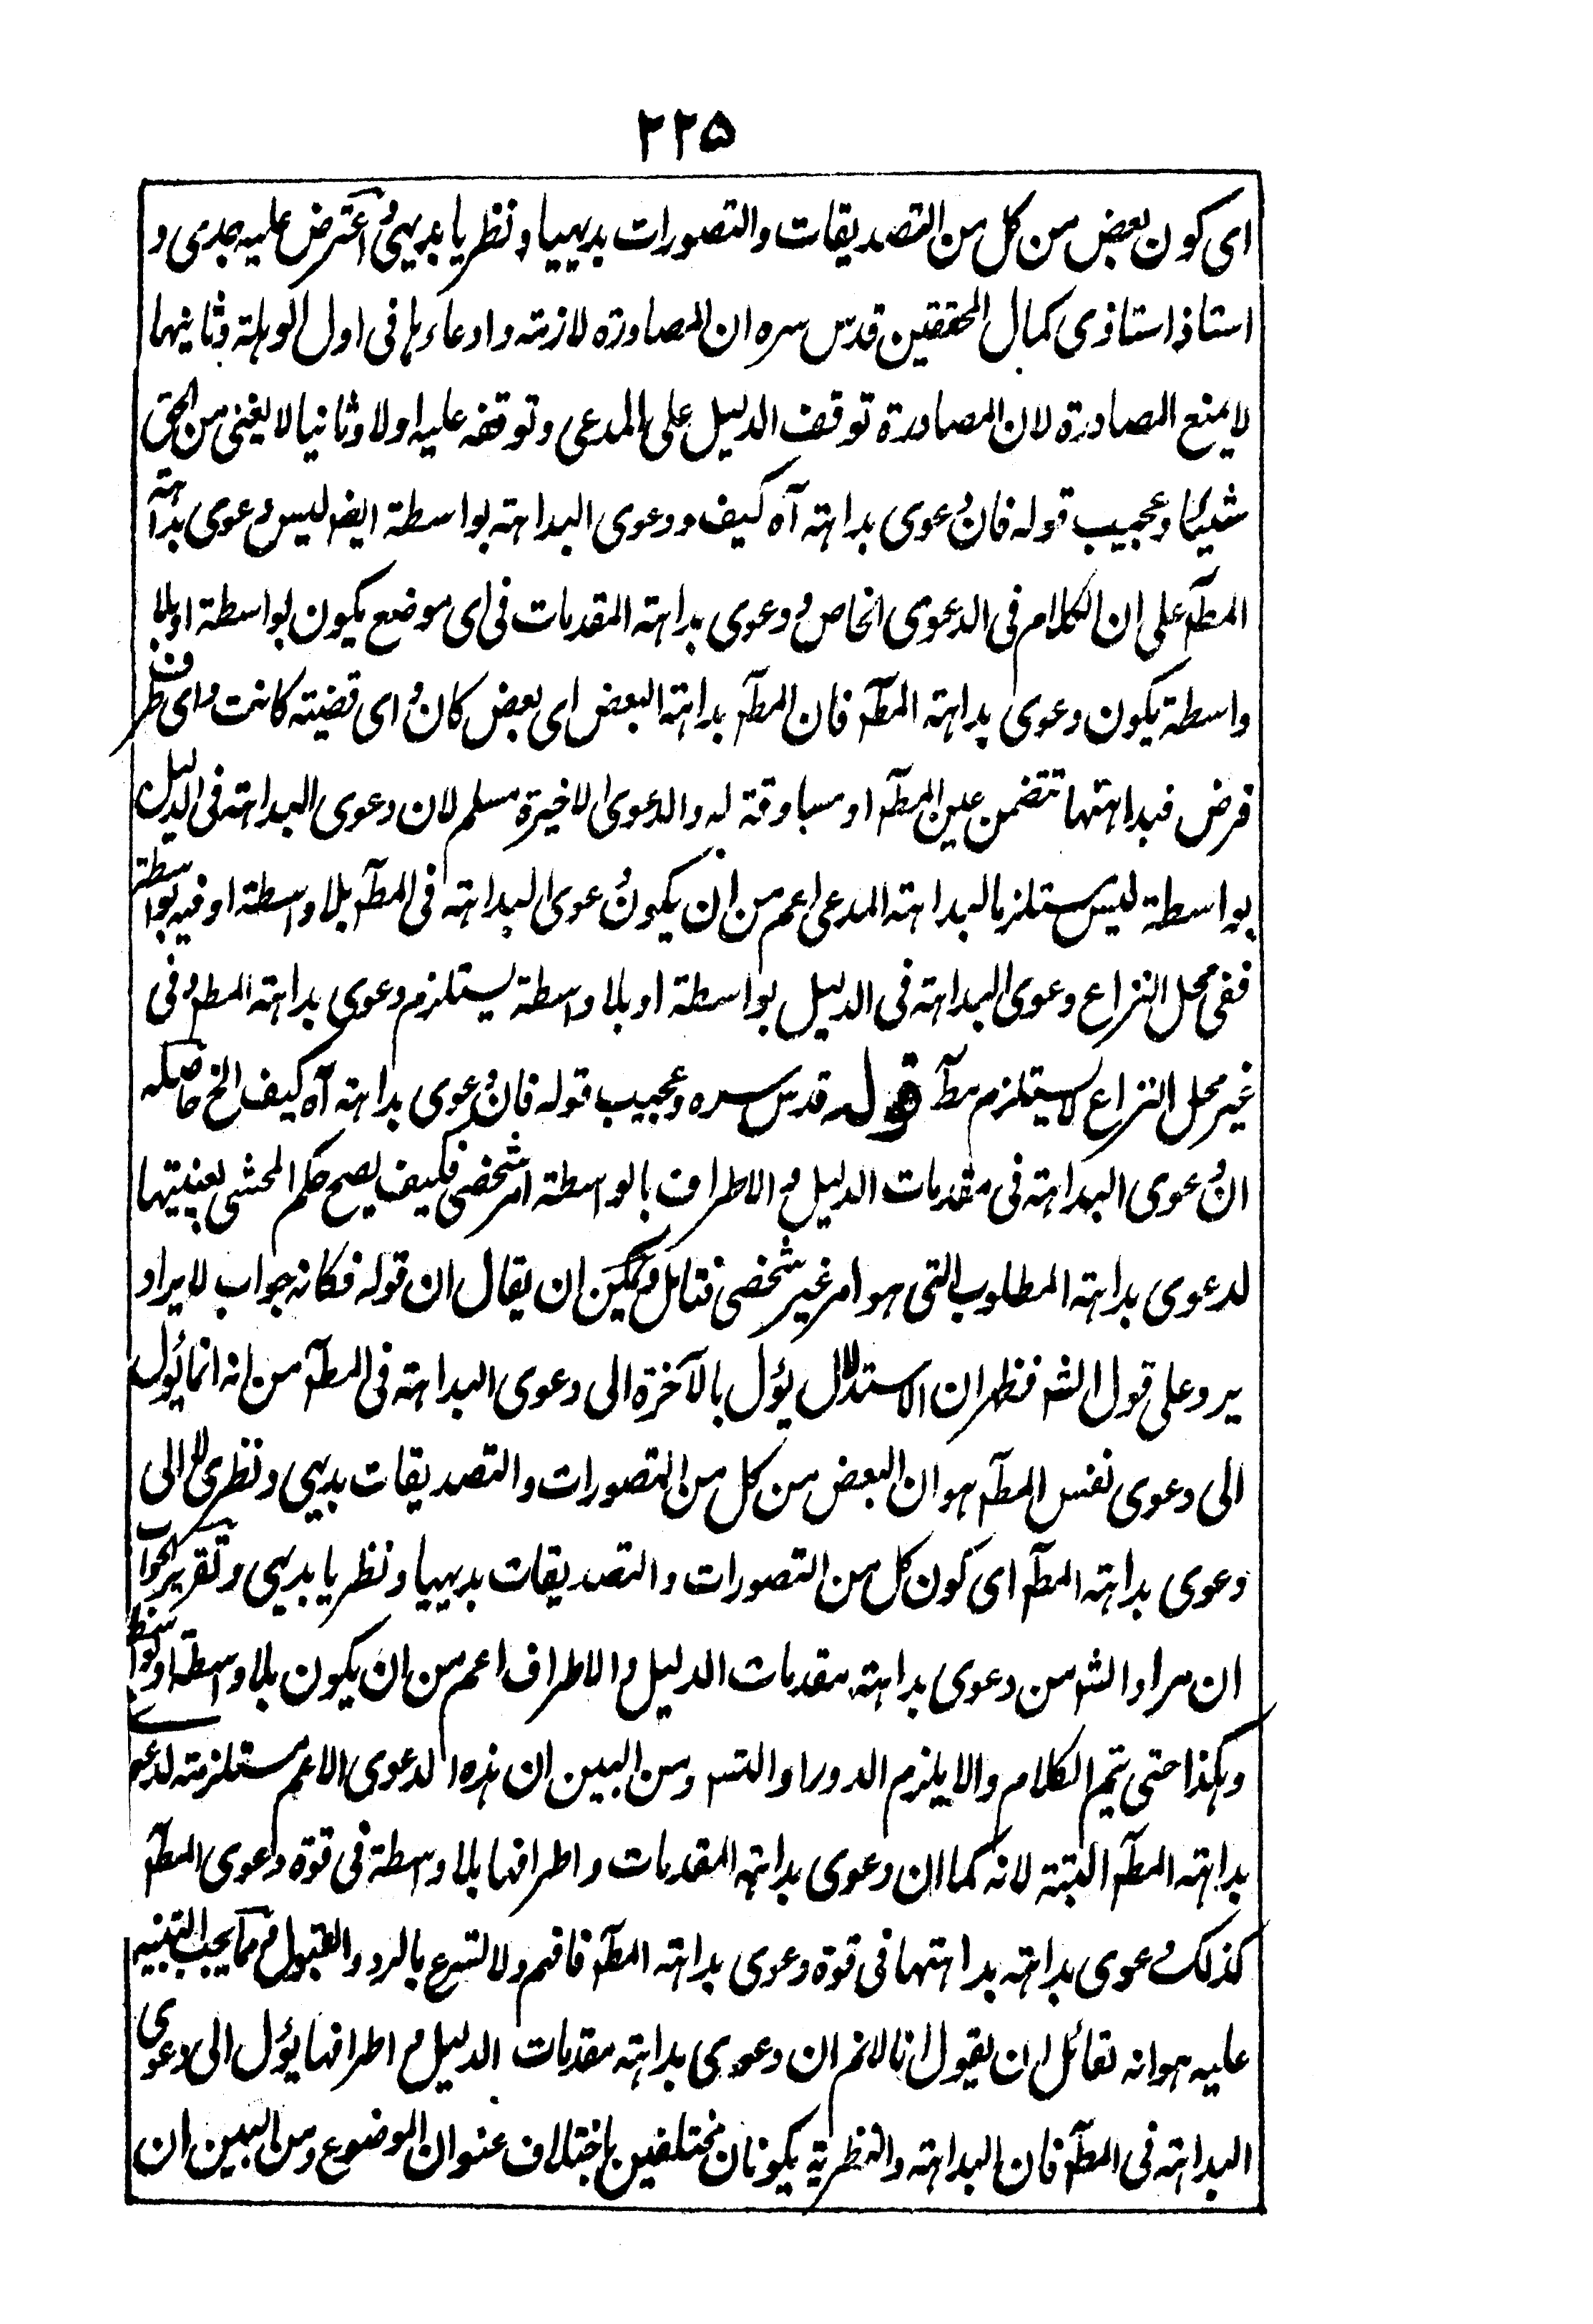 ٢٢٥
اى كون بعض من كل من التصديقات والتصورات بديهيا ونظريا بديهى واعترض عليه جدى و
استاذ استاذى كمال المحققين قدس سره ان المصادرة لازمته وادعاءها فى اول الوهلة وثانيهما
لا يمنع المصادرة لان المصادرة توقف الدليل على المدعى وتوقفه عليه اولا وثانيا لا يغنى من الحق
شيئا وعجيب قوله فان دعوى بداهته آه كيف ودعوى البداهته بواسطة ايضا ليس دعوى بداهته
المطـ على ان الكلام فى الدعوى الخاص ودعوى بداهته المقدمات فى اى موضع يكون بواسطة او بلا
واسطة يكون دعوى بداهته المطـ فان المطـ بداهته البعض اى بعض كان واى قضيته كانت واى طرف
فرض فبداهتها تتضمن عين المطـ او مساوقة له والدعوى الاخيرة مسلم لان دعوى البداهته فى الدليل
بواسطة ليس مستلزما لبداهته المدعى اعم من ان يكون دعوى البداهته فى المطـ بلا واسطة او فيه بواسطة
ففى محل النزاع دعوى البداهته فى الدليل بواسطة او بلا واسطة يستلزم دعوى بداهته المطـ وفى
غير محل النزاع لا يستلزم مطـ قوله قدس سره وعجيب قوله فان دعوى بداهته آه كيف الخ حاصله
ان دعوى البداهته فى مقدمات الدليل والاطراف بالواسطة امر شخصى فكيف يصح حكم المحشى بعينيتها
لدعوى بداهته المطلوب التى هو امر غير شخصى فتامل ويمكن ان يقال ان قوله فكانه جواب لايراد
يرد على قول الشـ فظهر ان الاستدلال يؤل بالآخرة الى دعوى البداهته فى المطـ من انه انما يؤل
الى دعوى نفس المطـ هو ان البعض من كل من التصورات والتصديقات بديهى ونظرى لا الى
دعوى بداهته المطـ اى كون كل من التصورات والتصديقات بديهيا ونظريا بديهى وتقرير الجواب
ان مراد الشـ من دعوى بداهته مقدمات الدليل والاطراف اعم من ان يكون بلا واسطة او بواسطة
وهكذا حتى يتم الكلام والا يلزم الدور او التسـ ومن البين ان هذه الدعوى الاعم مستلزمته لدعوى
بداهته المطـ البتة لانه كما ان دعوى بداهته المقدمات واطرافها بلا واسطة فى قوة دعوى المطـ
كذلك دعوى بداهته بداهتها فى قوة دعوى بداهته المطـ فافهم ولا تسرع بالرد والقبول ومما يجب التنبيه
عليه هو انه لقائل ان يقول انا لانم ان دعوى بداهته مقدمات الدليل واطرافها يؤل الى دعوى
البداهته فى المطـ فان البداهته والنظرية يكونان مختلفين باختلاف عنوان الموضوع ومن البين ان